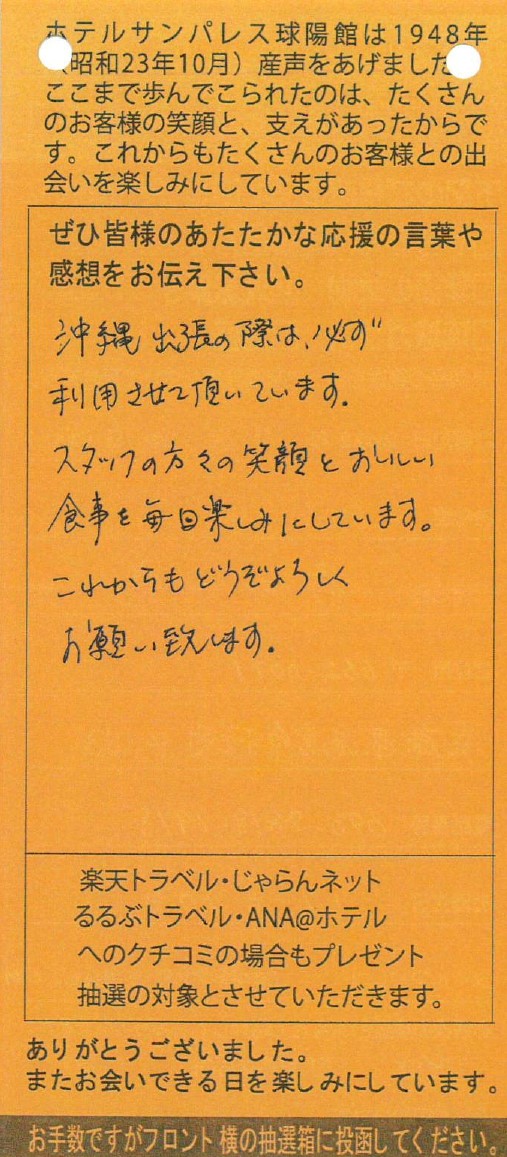 ホテルサンパレス球陽館は1948年
（昭和23年10月）産声をあげました
ここまで歩んでこられたのは、たくさん
のお客様の笑顔と、支えがあったからで
す。これからもたくさんのお客様との出
会いを楽しみにしています。
ぜひ皆様のあたたかな応援の言葉や
感想をお伝え下さい。
沖縄出張の際は、必ず
利用させて頂いています。
スタッフの方々の笑顔とおいしい
食事を毎日楽しみにしています。
これからもどうぞよろしく
お願い致します。
楽天トラベル・じゃらんネット
るるぶトラベル・ANA@ホテル
へのクチコミの場合もプレゼント
抽選の対象とさせていただきます。
ありがとうございました。
またお会いできる日を楽しみにしています。
お手数ですがフロント横の抽選箱に投函してください。